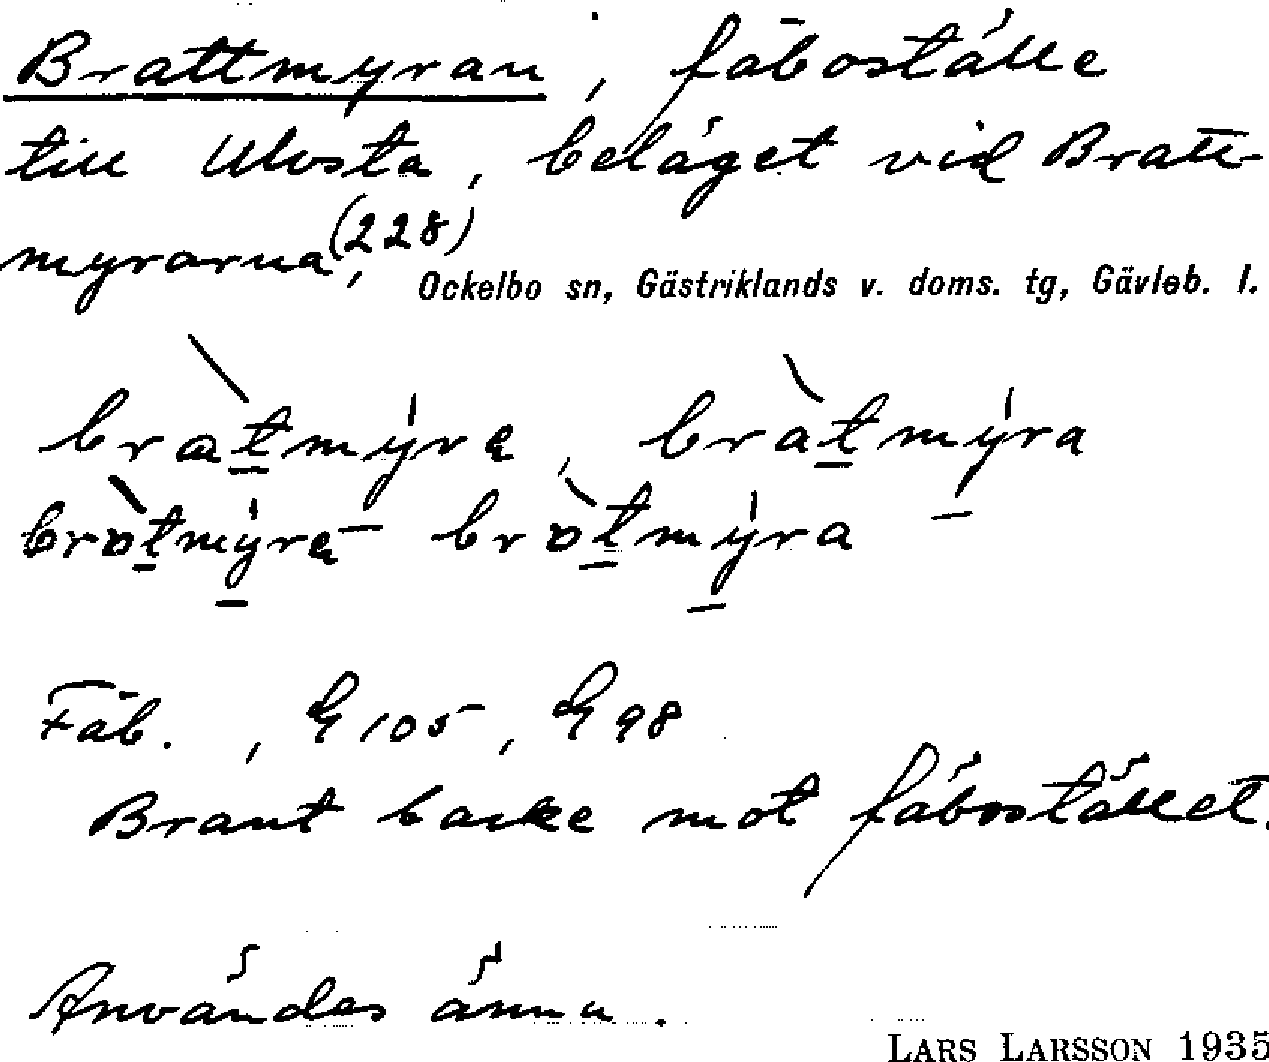 Brattmyran, fäboställe
till Ulvsta, beläget vid Bratt-
myrarna (228),
Ockelbo sn, Gästriklands v. doms. tg, Gävleb. l.
bratmyra, bratmyra
brotmyra brotmyra
Fäb., G 105, G 98
Brant backe mot fäbostället.
Användes ännu.
LARS LARSSON 1935